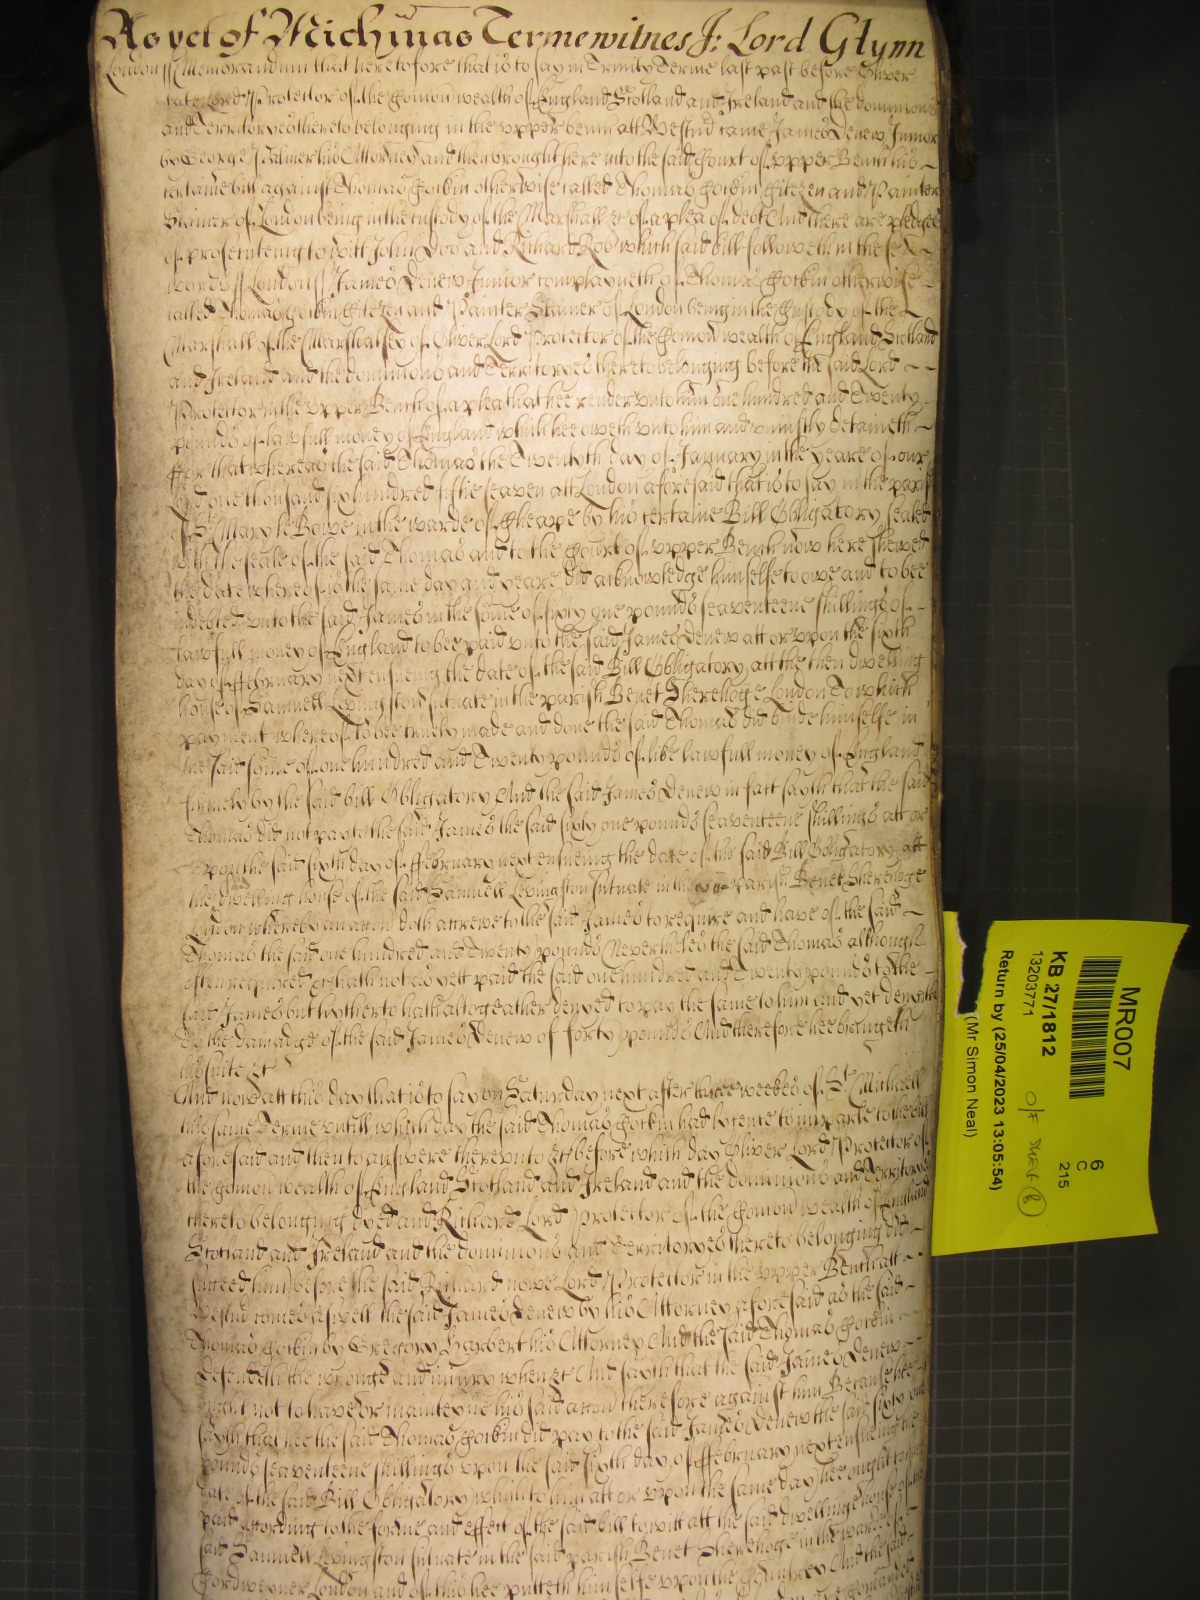 As yet of Michmas Terme witnes J: Lord Glynn
London ss Memorandum that heretofore that is to say in Trinity Terme last past before Oliver
late Lord Protector of the Comon wealth of England Scotland and Ireland and the dominions
and Territoryes thereto belonging in the upper bench att Westmr came James Denew Junior
by George Palmer his Attorney and then brought here into the said Court of upper Bench his
certaine bill against Thomas Gockin otherwise called Thomas Gockin Citezen and Painter
Stainer of London being in the custody of the Marshall &c of a plea of debt And there are pledges
of prosecuteing to witt John Doo and Richard Roo which said bill followeth in these
words ss London ss James Denew Junior complayneth of Thomas Gockin otherwise
called Thomas Gockin Citezen and Painter Stainer of London being in the Custody of the
Marshall of the Marshalsey of Oliver Lord Protector of the Comon wealth of England Scotland
and Ireland and the dominions and Territoryes thereto belonging before the said Lord
Protector in the upper Bench of a plea that hee render unto him one hundred and Twenty
pounds of lawfull money of England which hee oweth unto him and uniustly detaineth
ffor that whereas the said Thomas the Twentyth day of January in the yeare of our
Lord one thousand six hundred fiftie seaven att London aforesaid that is to say in the parish
of St Mary le Bowe in the warde of Cheape by his certaine Bill Obligatory sealed
with the seale of the said Thomas and to the Court of upper Bench now here shewed
the date whereof is the same day and yeare did acknowledge himselfe to owe and to bee
indebted unto the said James in the some of sixty one pounds seaventeene shillings of
lawfull money of England to bee paid unto the said James Denew att or upon the sixth
day of ffebruary next ensueing the date of the said Bill Obligatory att the then dwelling
house of Samuell Levingston scituate in the parish Benet Sherehoge London To which
payment whereof to bee truely made and done the said Thomas did binde himselfe in
the said some of one hundred and Twenty pounds of like lawfull money of England
firmely by the said bill Obligatory And the said James Denew in fact sayth that the said
Thomas did not pay to the said James the said sixty one pounds seaventeene shillings att or
upon the said sixth day of ffebruary next ensueing the date of the said Bill Obligatory att
the dwelling house of the said Samuell Levingston scituate in the parish Benet Sherehoge
London whereby an accon doth accrewe to the said James to require and have of the said
Thomas the said one hundred and Twenty pounds Neverthelesse the said Thomas although
often required &c hath not as yett paid the said one hundred and Twenty pounds to the
said James but hitherto hath altogeather denyed to pay the same to him and yet denyeth
To the damage of the said James Denew of forty pounds And therefore hee bringeth
his suite &c
And now att this day that is to say on Saturday next after three weekes of St Michaell
this same Terme untill which day the said Thomas Gockin had licence to imparle to the bill
aforesaid and then to answere thereunto &c before which day Oliver Lord Protector of
the Comon wealth of England Scotland and Ireland and the dominions and Territoryes
thereto belonging dyed and Richard Lord Protector of the Comon wealth of England
Scotland and Ireland and the dominions and Territoryes thereto belonging did
succeed him before the said Richard nowe Lord Protector in the upper Bench att
Westmr comes aswell the said James Denew by his Attorney aforesaid as the said
Thomas Gockin by Gregory Harbert his Attorney And the said Thomas Gockin
defendeth the wronge and iniury when &c And sayth that the said James Denew
ought not to have or mainteyne his said accon therefore against him Because hee
sayth that hee the said Thomas Gockin did pay to the said James Denew the said sixty one
pounds seaventeene shillings upon the said sixth day of ffebruary next ensueing the
date of the said Bill Obligatory which to him att or upon the same day hee ought to have
paid according to the forme and effect of the said bill to witt att the said dwelling house of the
said Samuell Levingston scituate in the said parish Benet Sherehoge in the warde of
Cordweyner London and of this hee putteth himselfe upon the Countrey And the said
MR007
6
C
215
KB 27/1812
13203771
O/F SHELF B
Return by (25/04/2023 13:05:54)
(Mr Simon Neal)